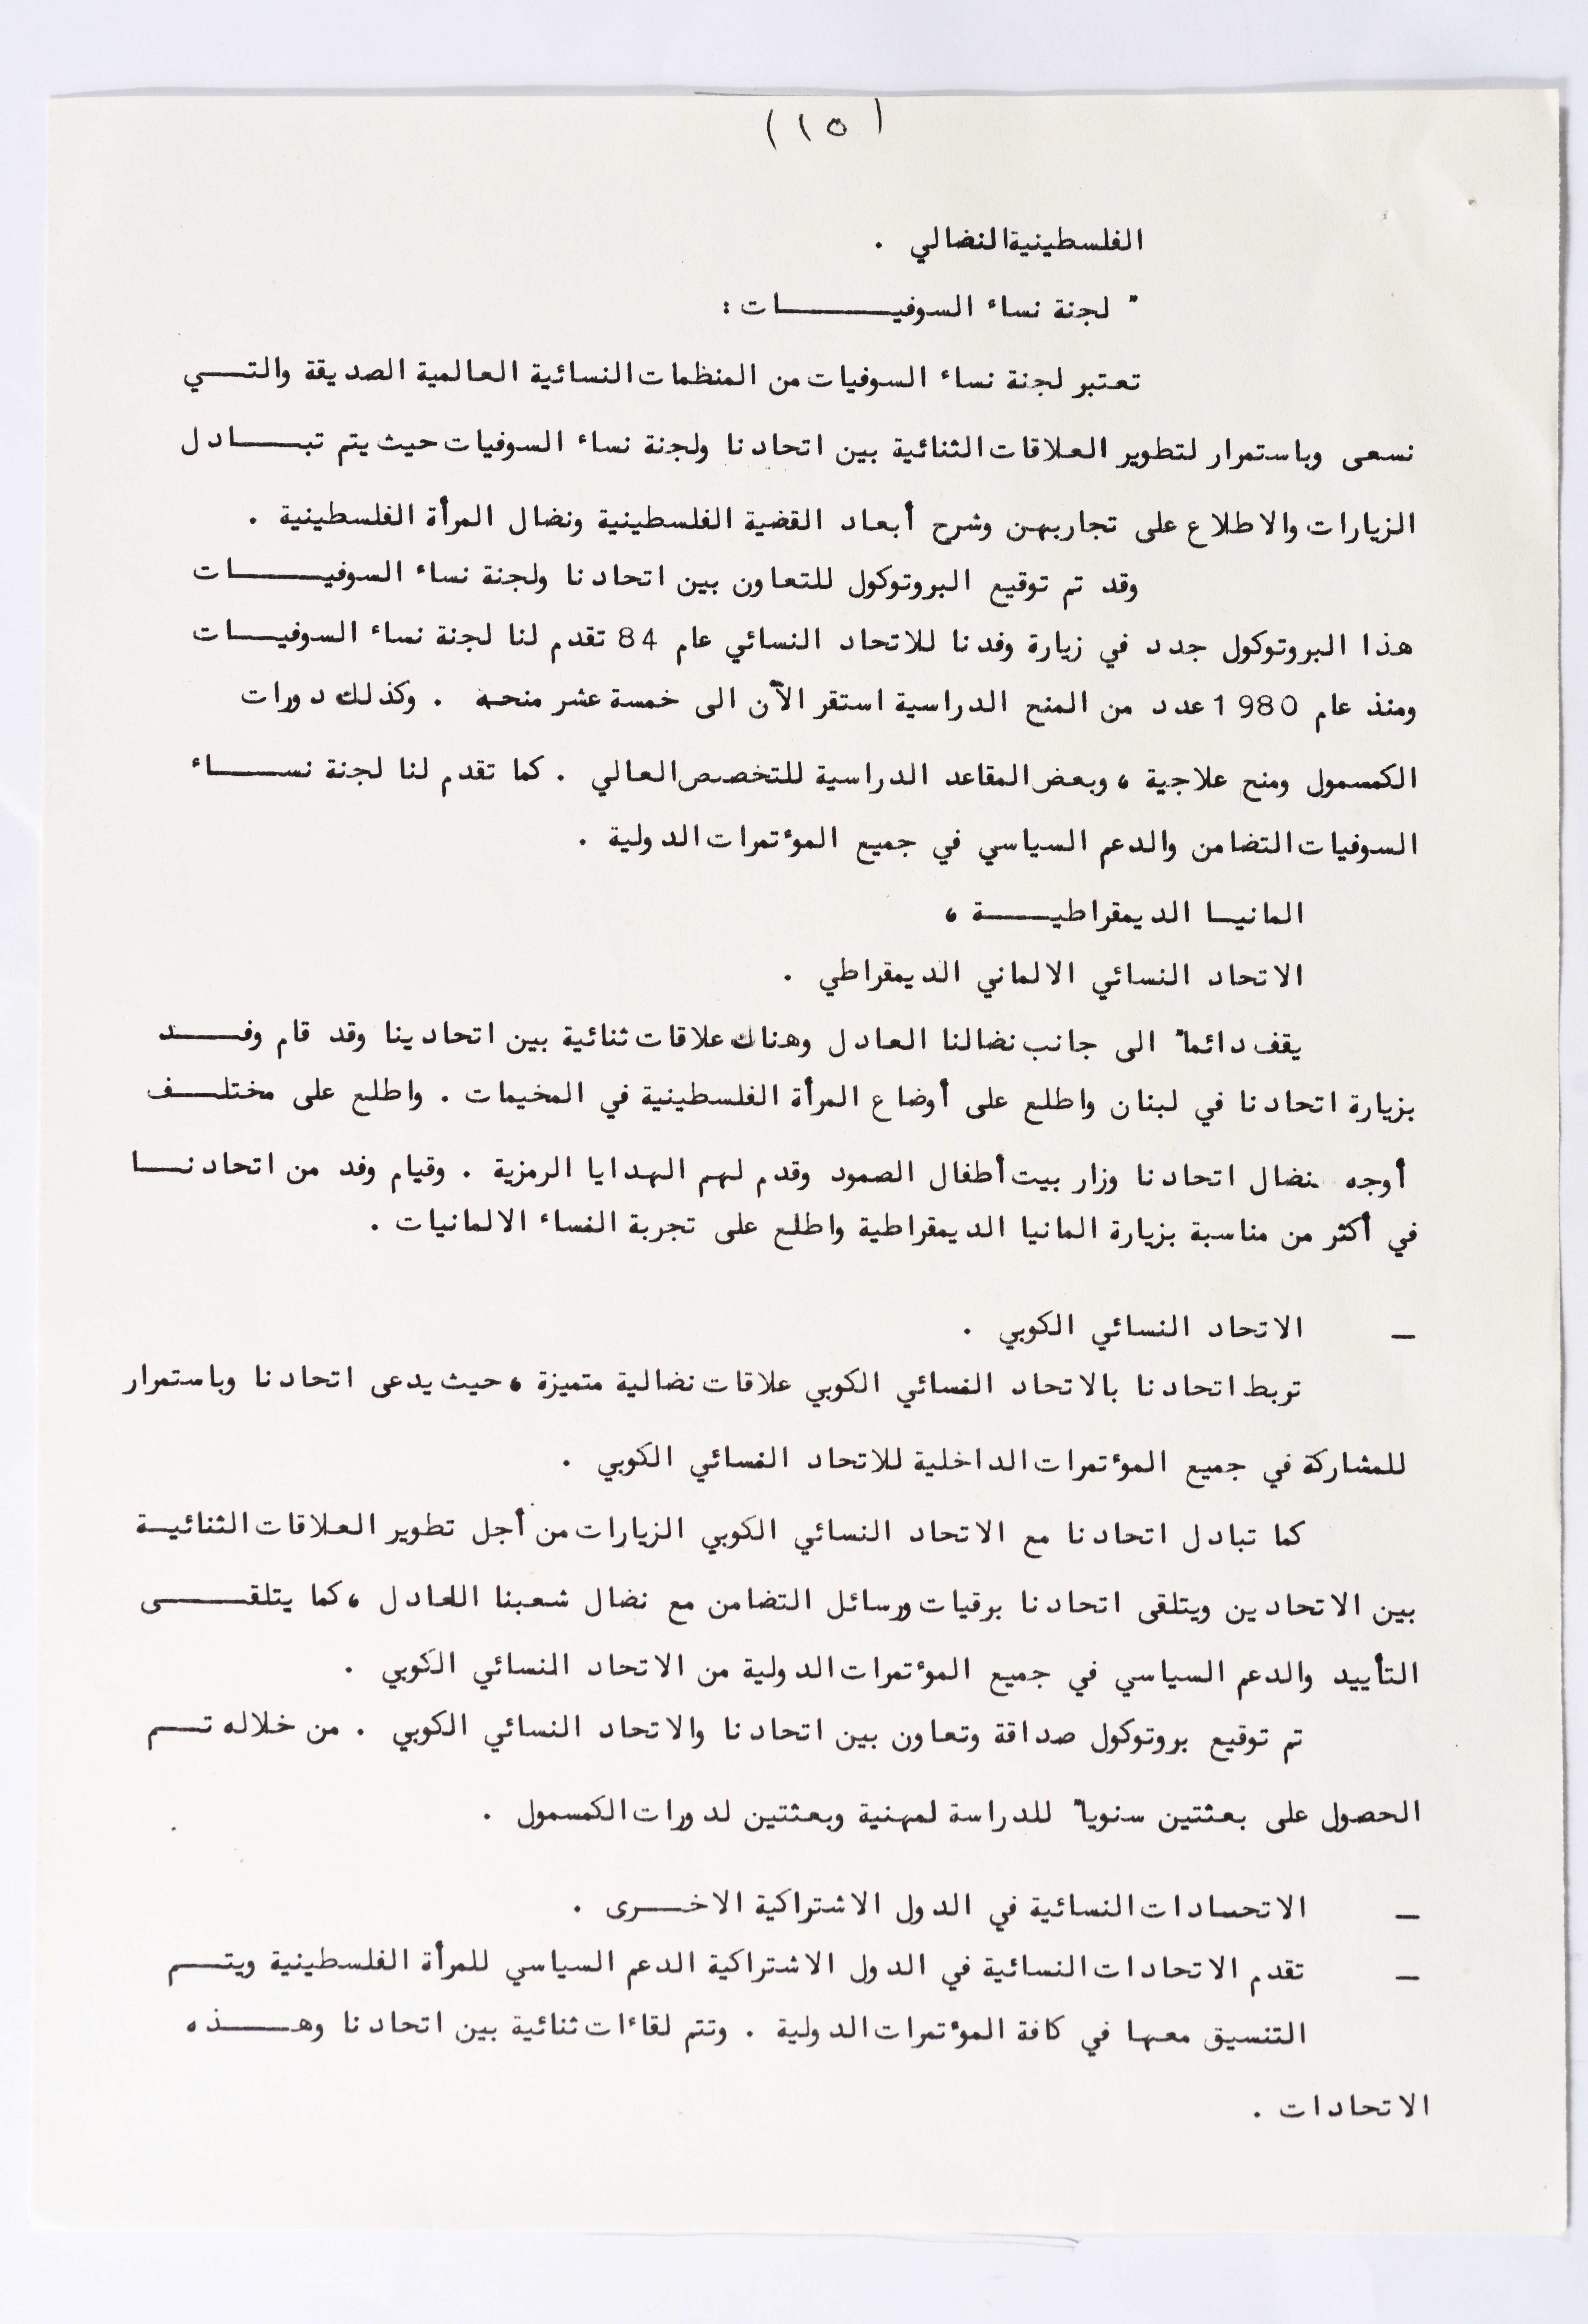 (١٥)
الفلسطينية النضالي .
" لجنة نساء السوفيـــــــات :
تعتبر لجنة نساء السوفيات من المنظمات النسائية العالمية الصديقة والتـــي
نسعى وباستمرار لتطوير العلاقات الثنائية بين اتحادنا ولجنة نساء السوفيات حيث يتم تبـــادل
الزيارات والاطلاع على تجاربهن وشرح أبعاد القضية الفلسطينية ونضال المرأة الفلسطينية .
وقد تم توقيع البروتوكول للتعاون بين اتحادنا ولجنة نساء السوفيـــــات
هذا البروتوكول جدد في زيارة وفدنا للاتحاد النسائي عام 84 تقدم لنا لجنة نساء السوفيـــات
ومنذ عام 1980 عدد من المنح الدراسية استقر الآن الى خمسة عشر منحه . وكذلك دورات
الكمسمول ومنح علاجية ، وبعض المقاعد الدراسية للتخصص العالي . كما تقدم لنا لجنة نســـاء
السوفيات التضامن والدعم السياسي في جميع المؤتمرات الدولية .
المانيـا الديمقراطيــــــة ،
الاتحاد النسائي الالماني الديمقراطي .
يقف دائما" الى جانب نضالنا العادل وهناك علاقات ثنائية بين اتحادينا وقد قام وفـــد
بزيارة اتحادنا في لبنان واطلع على أوضاع المرأة الفلسطينية في المخيمات . واطلع على مختلــف
أوجه نضال اتحادنا وزار بيت أطفال الصمود وقدم لهم الهدايا الرمزية . وقيام وفد من اتحادنـــا
في أكثر من مناسبة بزيارة المانيا الديمقراطية واطلع على تجربة النساء الالمانيات .
— الاتحاد النسائي الكوبي .
تربط اتحادنا بالاتحاد النسائي الكوبي علاقات نضالية متميزة ، حيث يدعى اتحادنا وباستمرار
للمشاركة في جميع المؤتمرات الداخلية للاتحاد النسائي الكوبي .
كما تبادل اتحادنا مع الاتحاد النسائي الكوبي الزيارات من أجل تطوير العلاقات الثنائيـة
بين الاتحادين ويتلقى اتحادنا برقيات ورسائل التضامن مع نضال شعبنا العادل ، كما يتلقـــــى
التأييد والدعم السياسي في جميع المؤتمرات الدولية من الاتحاد النسائي الكوبي .
تم توقيع بروتوكول صداقة وتعاون بين اتحادنا والاتحاد النسائي الكوبي . من خلاله تـــم
الحصول على بعثتين سنويا" للدراسة لمهنية وبعثتين لدورات الكمسمول .
— الاتحسادات النسائية في الدول الاشتراكية الاخـــرى .
— تقدم الاتحادات النسائية في الدول الاشتراكية الدعم السياسي للمرأة الفلسطينية ويتـــم
التنسيق معها في كافة المؤتمرات الدولية . وتتم لقاءات ثنائية بين اتحادنا وهـــــذه
الاتحادات .